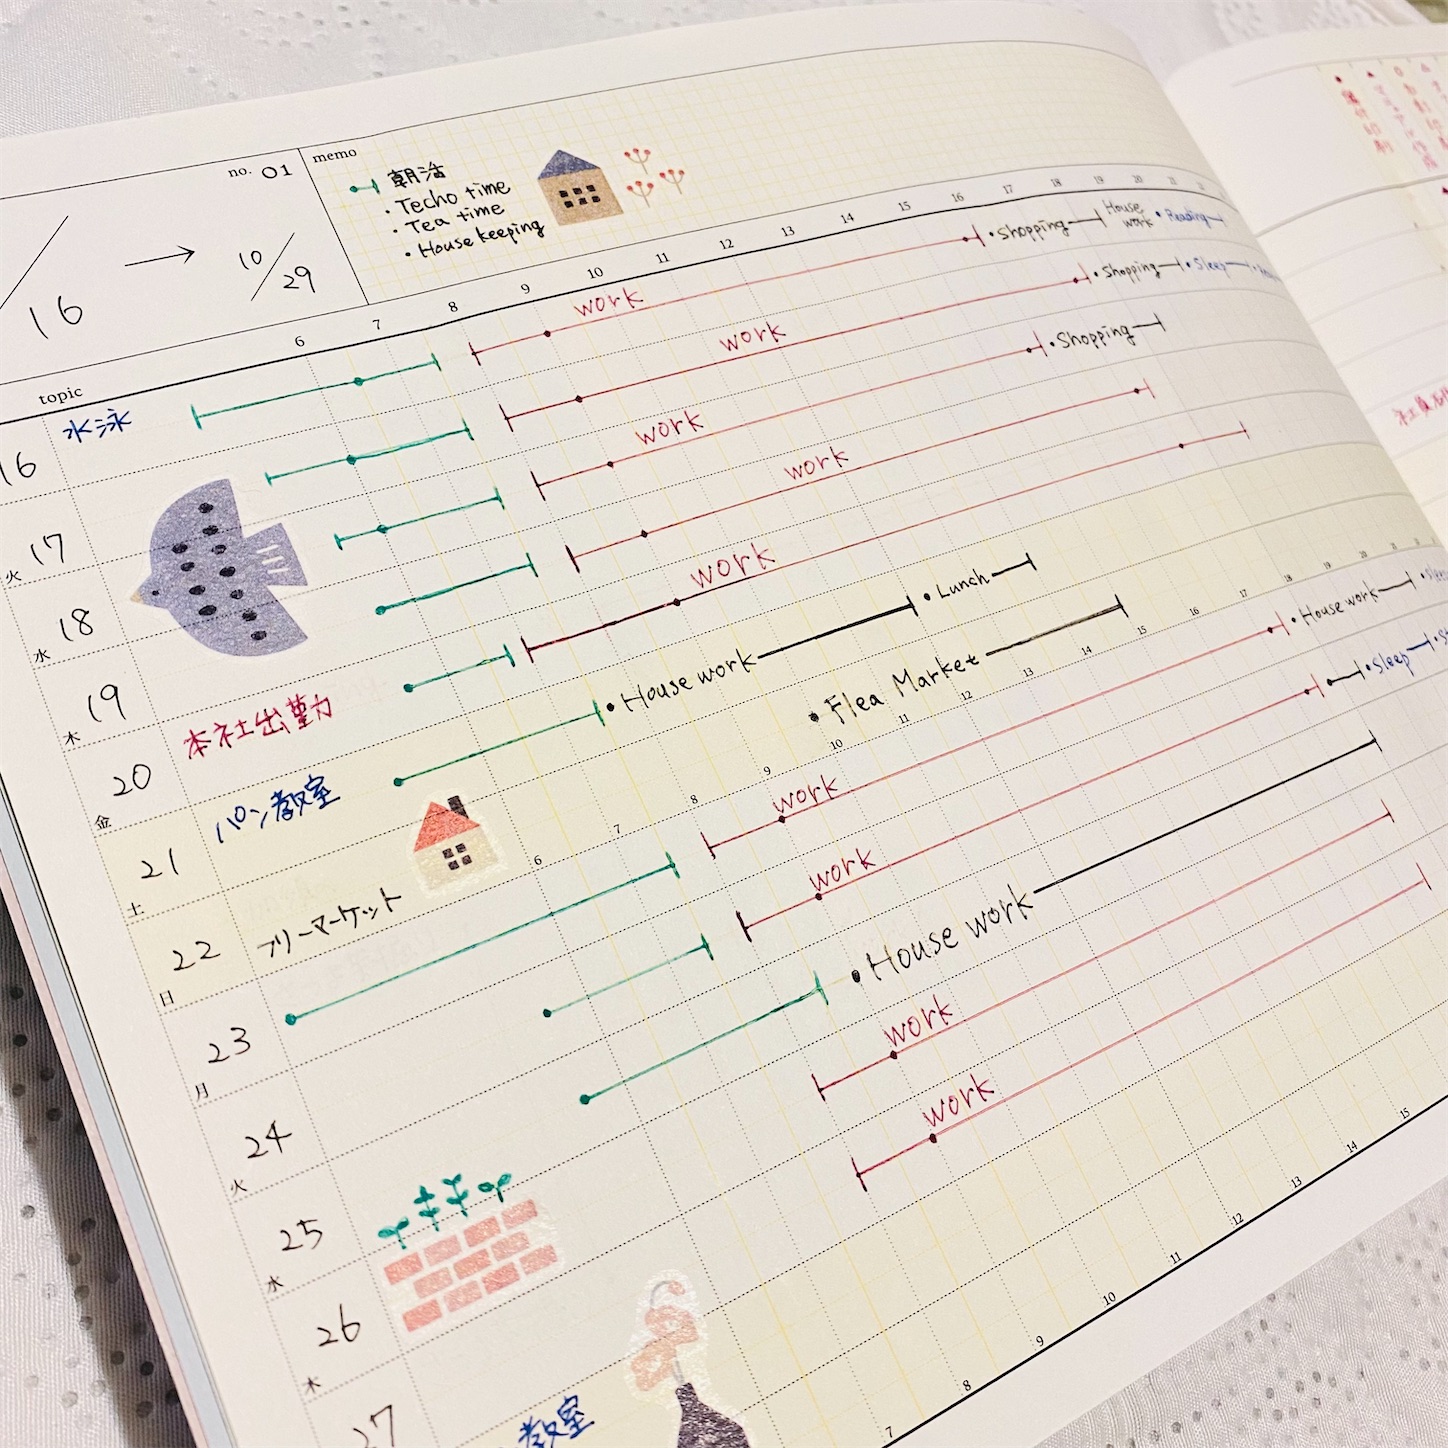 no. 01
memo
朝活
・Techo time
・Tea time
・House keeping
16 → 10/29
6 7 8 9 10 11 12 13 14 15 16 17 18 19 20 21
topic
16 水泳 work ・Shopping House work ・Reading
火 17 work ・Shopping ・Sleep
水 18 work ・Shopping
木 19 work
金 20 本社出勤 work
土 21 パン教室 ・House work ・Lunch
日 22 フリーマーケット ・Flea Market
6 7 8 9 10 11 12 13 14 15 16 17 18 19 20
月 23 work ・House work
火 24 work ・Sleep
水 25 ・House work
木 26 work
27 work
教室
7 8 9 10 11 12 13 14 15